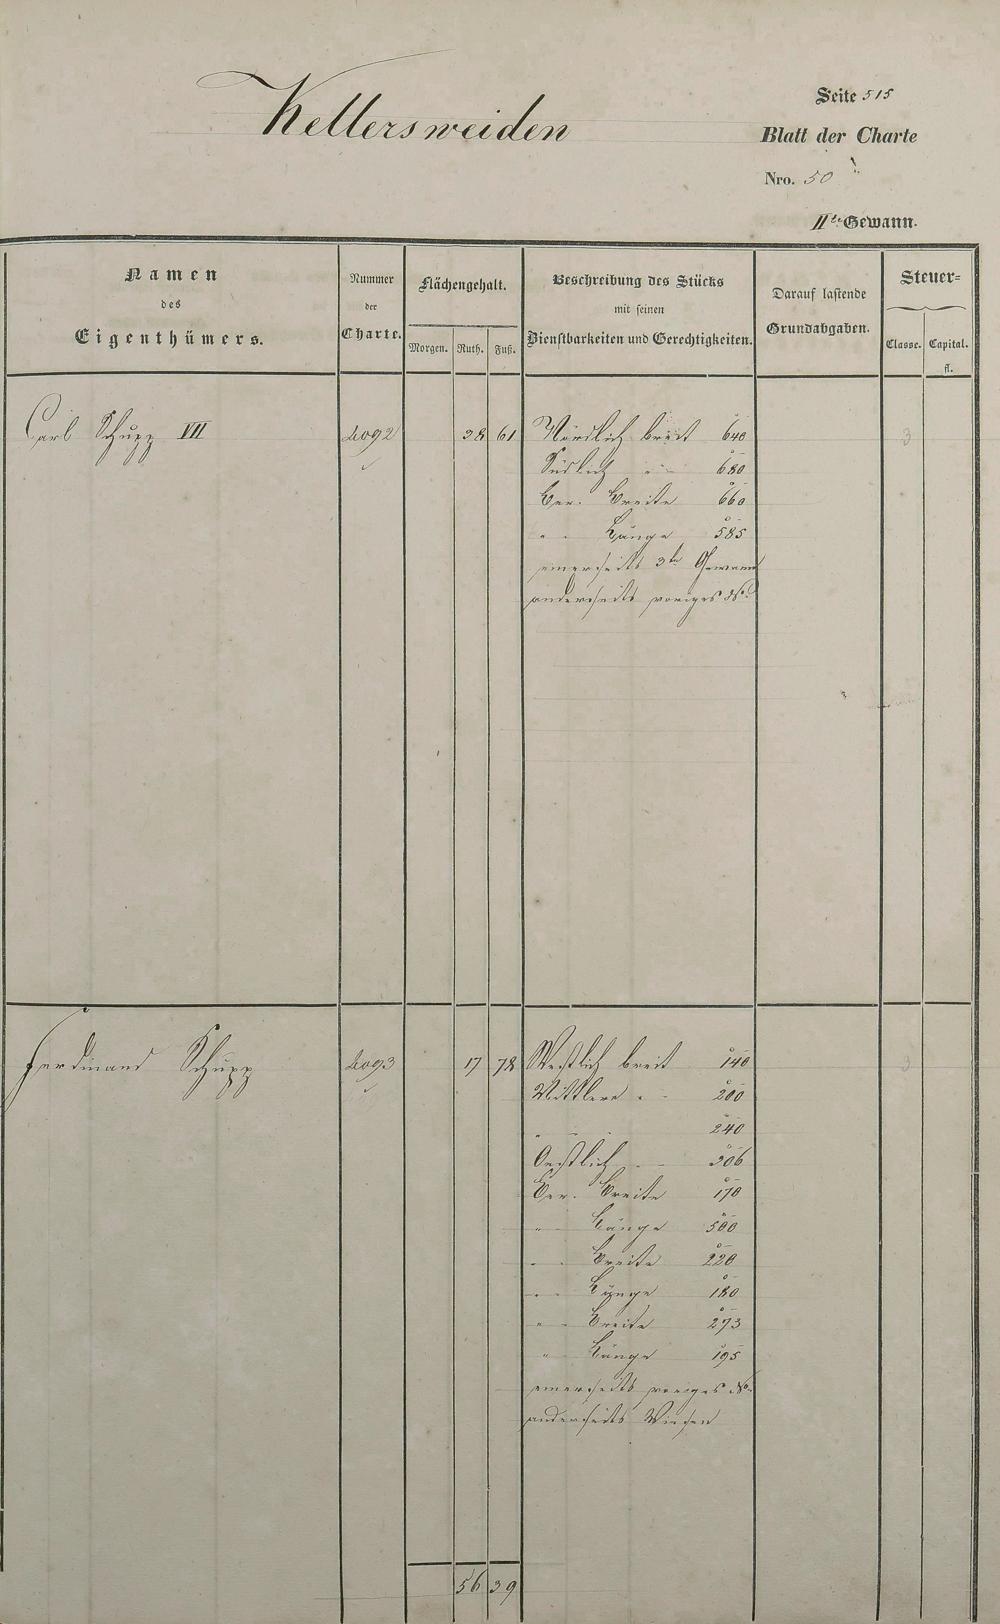 Kellersweiden
Seite 515
Blatt der Charte
Nro. 50
IIte Gewann.
Namen
des
Eigenthümers.
Nummer
der
Charte.
Flächengehalt.
Morgen. Ruth. Fuß.
Beschreibung des Stücks
mit seinen
Dienstbarkeiten und Gerechtigkeiten.
Darauf lastende
Grundabgaben.
Steuer=
Classe. Capital.
fl.
Carl Schupp VII 4092 38 61 Nördlich breit 640 3
Südlich " 680
Ber. Breite 660
" " Länge 585
einerseits 3te Gewann
anderseits voriges No.
Ferdinand Schupp 4093 17 78 Westlich breit 140 3
Mittlere " 200
" " 240
Oestlich " 306
Ber. Breite 170
" " Länge 500
" " Breite 220
" " Länge 180
" " Breite 273
" Länge 195
einerseits voriges No.
anderseits Wiesen
56 39